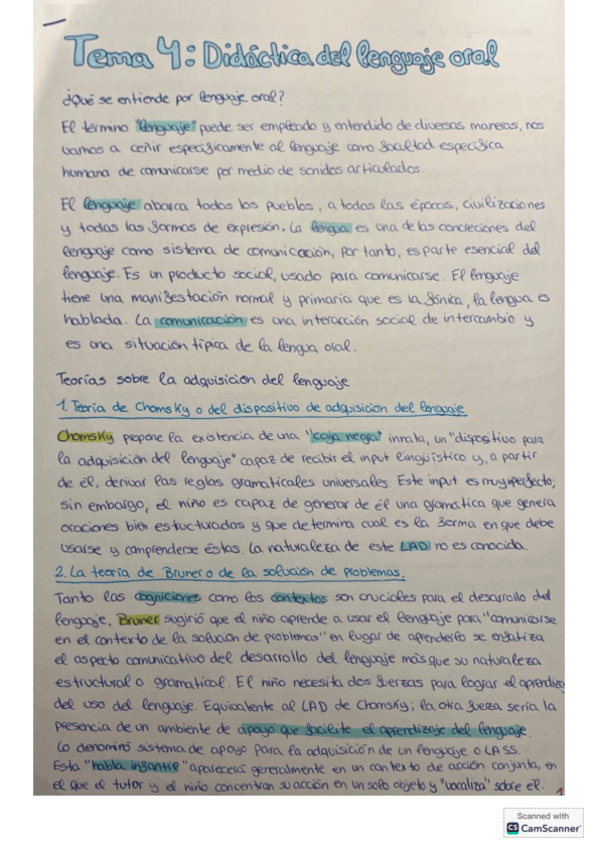 Tema 4: Didáctica del lenguaje oral
¿Qué se entiende por lenguaje oral?
El término "lenguaje" puede ser empleado y entendido de diversas maneras, nos
vamos a ceñir específicamente al lenguaje como facultad específica
humana de comunicarse por medio de sonidos articulados.
El lenguaje abarca todos los pueblos, a todas las épocas, civilizaciones
y todas las formas de expresión. La lengua es una de las concreciones del
lenguaje como sistema de comunicación, por tanto, es parte esencial del
lenguaje. Es un producto social, usado para comunicarse. El lenguaje
tiene una manifestación normal y primaria que es la fónica, la lengua es
hablada. La comunicación es una interacción social de intercambio y
es una situación típica de la lengua oral.
Teorías sobre la adquisición del lenguaje
1. Teoría de Chomsky o del dispositivo de adquisición del lenguaje
Chomsky propone la existencia de una "caja negra" innata, un "dispositivo para
la adquisición del lenguaje" capaz de recibir el input lingüístico y, a partir
de él, derivar las reglas gramaticales universales. Este input es muy imperfecto;
sin embargo, el niño es capaz de generar de él una gramática que genera
oraciones bien estucturadas y que determina cual es la forma en que debe
usarse y comprenderse éstas. La naturaleza de este LAD no es conocida.
2. La teoría de Bruner o de la solución de problemas.
Tanto las cogniciones como los contextos son cruciales para el desarrollo del
lenguaje. Bruner sugirió que el niño aprende a usar el lenguaje para "comunicarse
en el contexto de la solución de problemas" en lugar de aprenderlo se enfatiza
el aspecto comunicativo del desarrollo del lenguaje más que su naturaleza
estructural o gramatical. El niño necesita dos fuerzas para lograr el aprendizaje
del uso del lenguaje. Equivalente al LAD de Chomsky; la otra fueza sería la
presencia de un ambiente de apoyo que facilite el aprendizaje del lenguaje.
Lo denominó sistema de apoyo para la adquisición de un lenguaje o LASS.
Esta "habla infantil" aparecerá generalmente en un contexto de acción conjunta, en
el que el tutor y el niño concentran su acción en un solo objeto y "vocaliza" sobre él.
1
Scanned with
CS CamScanner